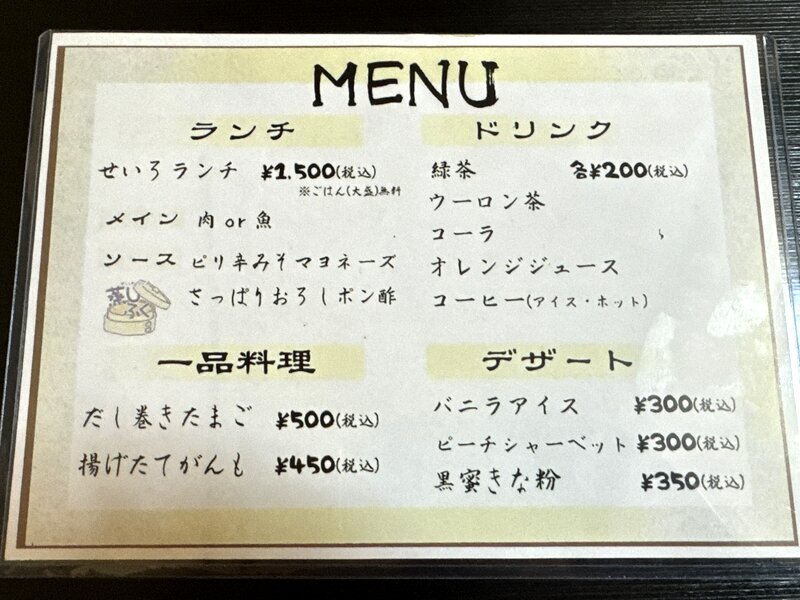 MENU
ランチ
せいろランチ ¥1,500(税込)
※ごはん(大盛)無料
メイン 肉 or 魚
ソース ピリ辛みそマヨネーズ
さっぱりおろしポン酢
蒸し
ふく
一品料理
だし巻きたまご ¥500(税込)
揚げたてがんも ¥450(税込)
ドリンク
緑茶 各¥200(税込)
ウーロン茶
コーラ
オレンジジュース
コーヒー(アイス・ホット)
デザート
バニラアイス ¥300(税込)
ピーチシャーベット ¥300(税込)
黒蜜きな粉 ¥350(税込)